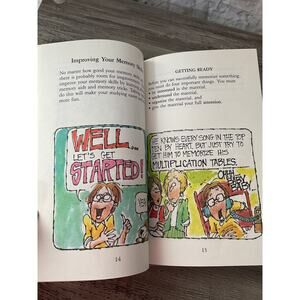 Improving Your Memory
No matter how good your memory
there is possible room for
improve your memory skills by
memory aids and memory tricks. Taking
do this will make your studying
more fun.
WELL...
LET'S GET
STARTED!
YES!
14
GETTING READY
Before you can successfully memorize something,
you must do four important things. You must
be interested in the material,
understand the material,
organize the material, and
give the material your full attention.
HE KNOWS EVERY SONG IN THE TOP
TEN BY HEART, BUT JUST TRY TO
GET HIM TO MEMORIZE HIS
MULTIPLICATION TABLES.
OOH
BABY
BABY
15